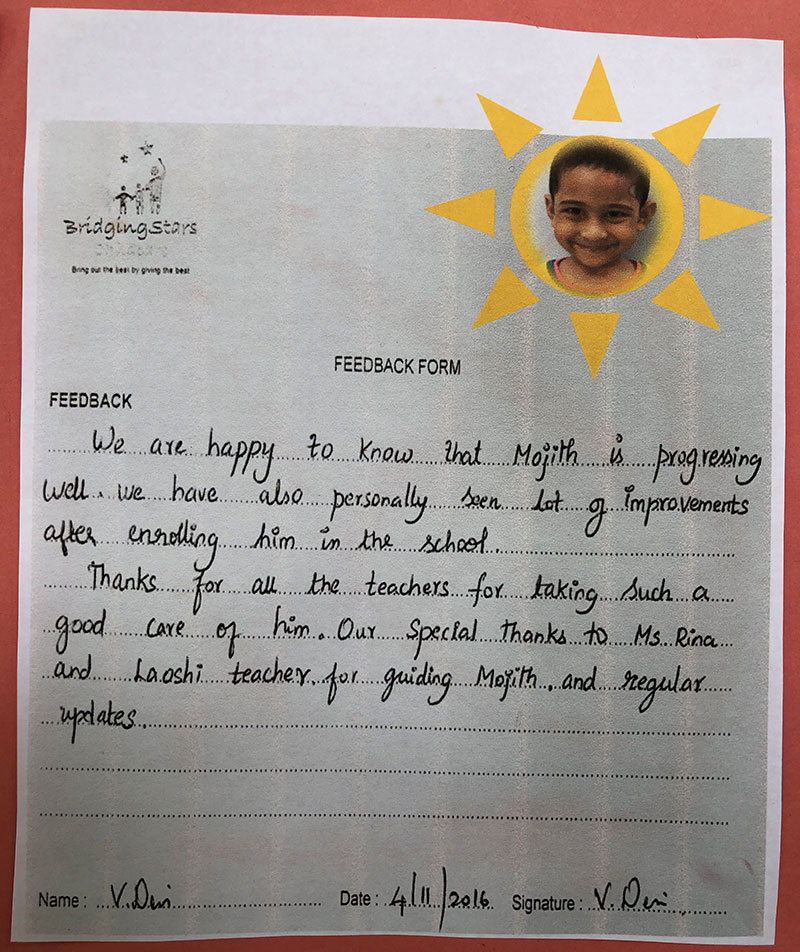 BridgingStars
Childcare
Bring out the best by giving the best
FEEDBACK FORM
FEEDBACK
We are happy to know that Mojith is progressing
well. we have also personally seen lot of improvements
after enrolling him in the school.
Thanks for all the teachers for taking such a
good care of him. Our Special thanks to Ms. Rina
and Laoshi teacher, for guiding Mojith, and regular
updates.
Name : V. Devi Date : 4/11/2016 Signature : V. Devi